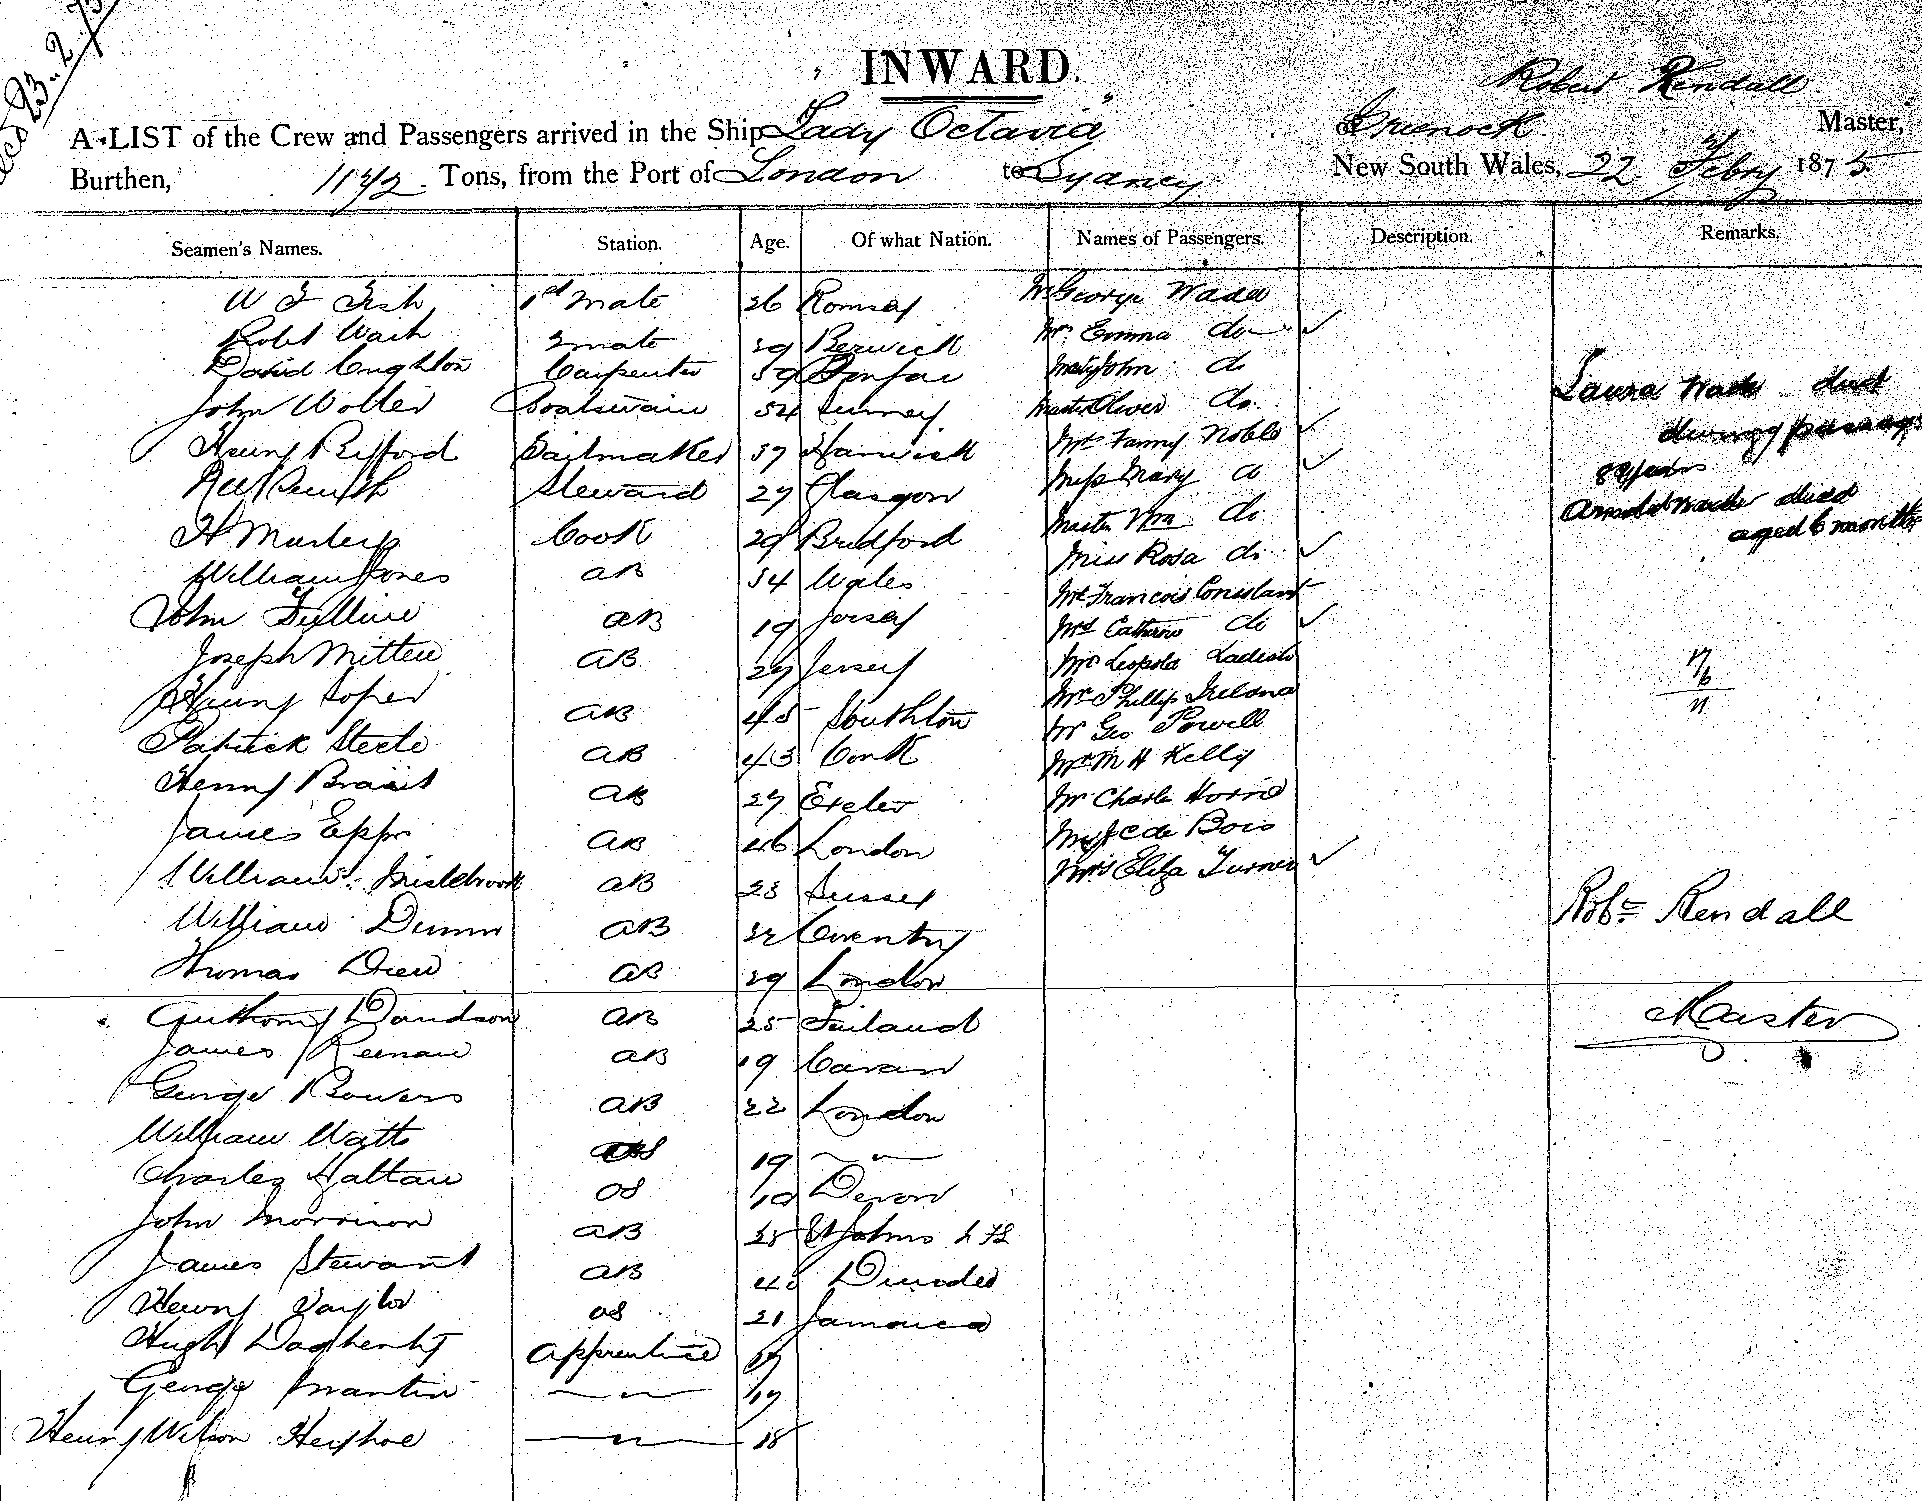 Recd 23-2-75
INWARD.
Robert Kendall
A LIST of the Crew and Passengers arrived in the Ship "Lady Octavia" of Greenock Master,
Burthen, 1172 Tons, from the Port of London to Sydney New South Wales, 22 Febry 1875
Seamen's Names. Station. Age. Of what Nation. Names of Passengers. Description. Remarks.
W F Fish 1st Mate 26 Romsey Mr George Wade
Robt 2 mate 29 Berwick Mrs Emma do ✓
David Carpenter Forfar John do
John Boatswain 54 Surrey Master Oliver do Laura Wade died
Henry Sailmaker 37 Harwich Mrs Fanny Noble ✓ during passage
Steward 27 Glasgow Miss Mary do ✓
H Cook 28 Bradford Master Wm do Wade died
William Jones AB 34 Wales Miss Rosa do ✓ aged 6 months
John AB 19 Jersey Mr Francois Constant
Joseph AB 27 Jersey Mrs Catherine do ✓
Henry Soper AB 45 Southton Mr Leopold
Patrick Steele AB 43 Cork Mr Phillip Ireland
Henry AB 27 Exeter Mr Geo Powell
James Epps AB 46 London Mr M H Kelly
William AB 23 Sussex Mr Charles
William Dunn AB 32 Coventry de Bois
Thomas Drew AB 29 London Mrs Eliza Turner ✓
Anthony Davidson AB 25 Finland Robt Kendall
James Keenan AB 19 Cavan Master
George Bowers AB 22 London
William Watts OS 19 — " —
Charles Hattan OS 18 Devon
John Morrison AB 25 St Johns
James Stewart AB Dundee
Henry Taylor OS 21 Jamaica
Hugh Dogherty Apprentice 17
George Martin — " — 17
Henry Wilson Heyhoe — " — 18